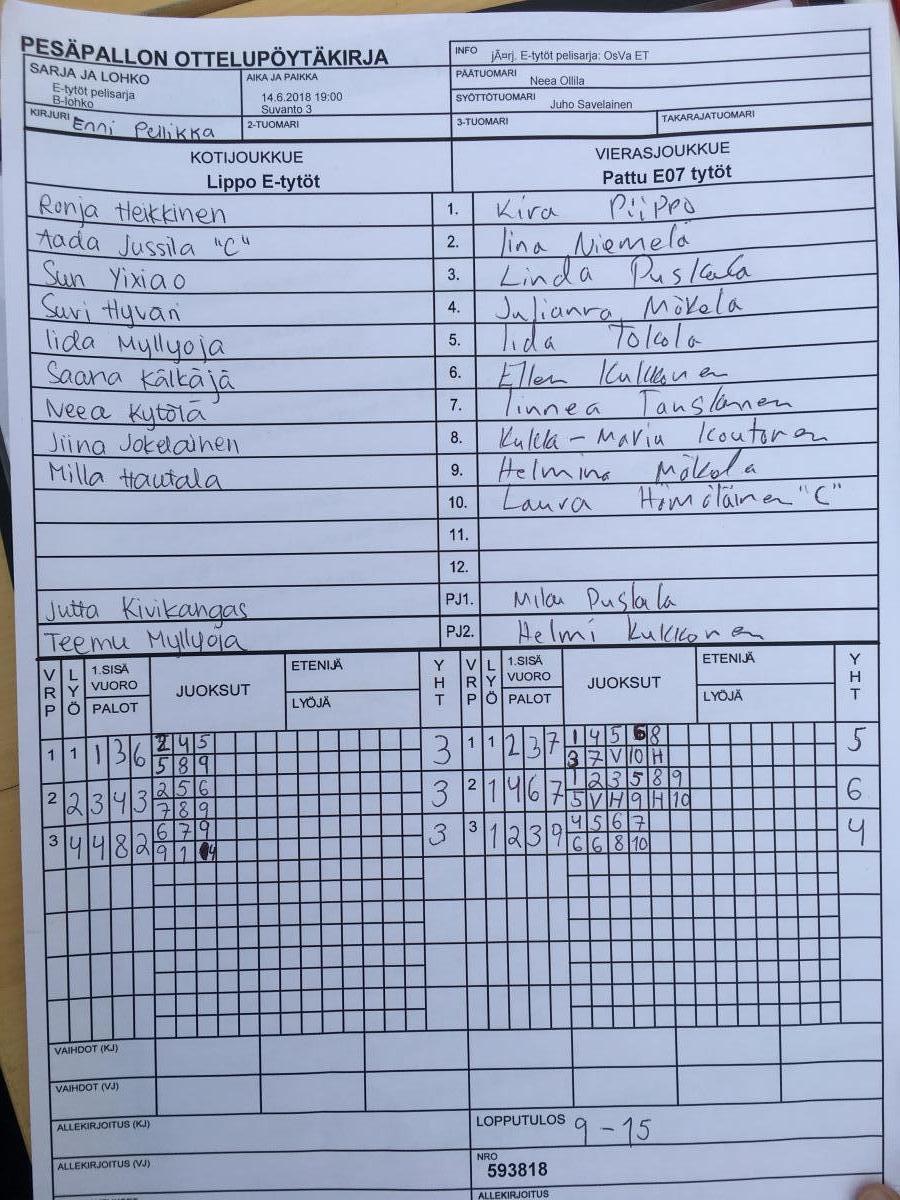 PESÄPALLON OTTELUPÖYTÄKIRJA
INFO jÃ¤rj. E-tytöt pelisarja: OsVa ET
SARJA JA LOHKO
E-tytöt pelisarja
B-lohko
AIKA JA PAIKKA
14.6.2018 19:00
Suvanto 3
PÄÄTUOMARI Neea Ollila
SYÖTTÖTUOMARI Juho Savelainen
KIRJURI Enni Pellikka
2-TUOMARI
3-TUOMARI
TAKARAJATUOMARI
KOTIJOUKKUE
Lippo E-tytöt
VIERASJOUKKUE
Pattu E07 tytöt
Ronja Heikkinen 1. Kira Piippo
Aada Jussila "C" 2. Iina Niemelä
Sun Yixiao 3. Linda Puskala
Suvi Hyväri 4. Julianna Mäkelä
Iida Myllyoja 5. Iida Tokola
Saana Kälkäjä 6. Ellen Kukkonen
Neea Kytölä 7. Linnea Tanskanen
Jiina Jokelainen 8. Kukka-Maria Koutonen
Milla Hautala 9. Helmina Mäkelä
10. Laura Hämäläinen "C"
11.
12.
Jutta Kivikangas PJ1. Milau Puskala
Teemu Myllyoja PJ2. Helmi Kukkonen
VRP LYÖ 1.SISÄ VUORO PALOT JUOKSUT ETENIJÄ LYÖJÄ YHT VRP LYÖ 1.SISÄ VUORO PALOT JUOKSUT ETENIJÄ LYÖJÄ YHT
1 1 1 3 6 2 4 5 3 1 1 2 3 7 1 4 5 6 8 5
5 8 9 3 7 V 10 H
2 2 3 4 3 2 5 6 3 2 1 4 6 7 1 2 3 5 8 9 6
7 8 9 5 V H 9 H 10
3 4 4 8 2 6 7 9 3 3 1 2 3 9 4 5 6 7 4
9 1 4 6 6 8 10
VAIHDOT (KJ)
VAIHDOT (VJ)
ALLEKIRJOITUS (KJ)
LOPPUTULOS 9 - 15
ALLEKIRJOITUS (VJ)
NRO
593818
ALLEKIRJOITUS